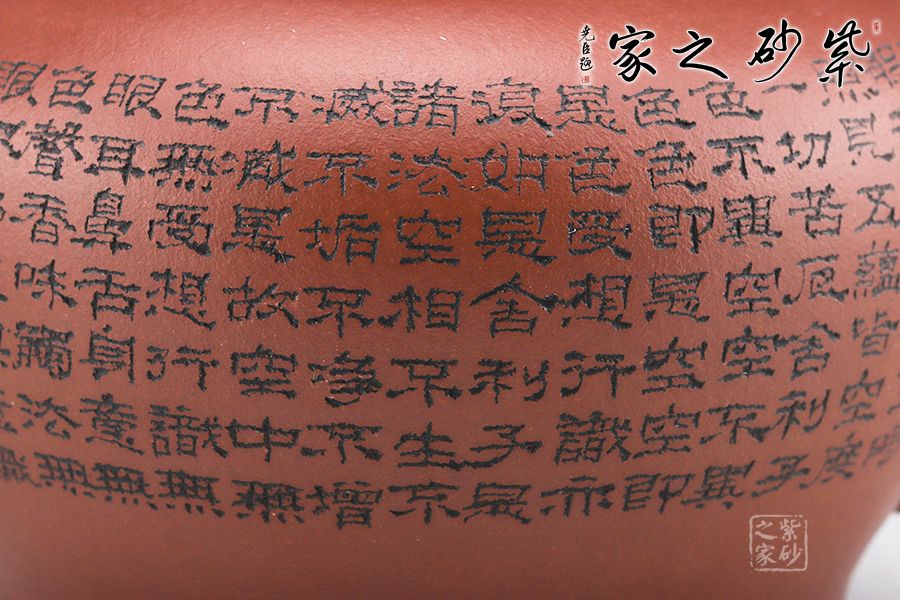 紫砂之家
堯臣題
照見五蘊皆空度
一切苦厄舍利子
色不異空空不異
色色即是空空即
是色受想行識亦
復如是舍利子是
諸法空相不生不
滅不垢不淨不增
不減是故空中無
色無受想行識無
眼耳鼻舌身意無
色聲香味觸法無
紫砂
之家